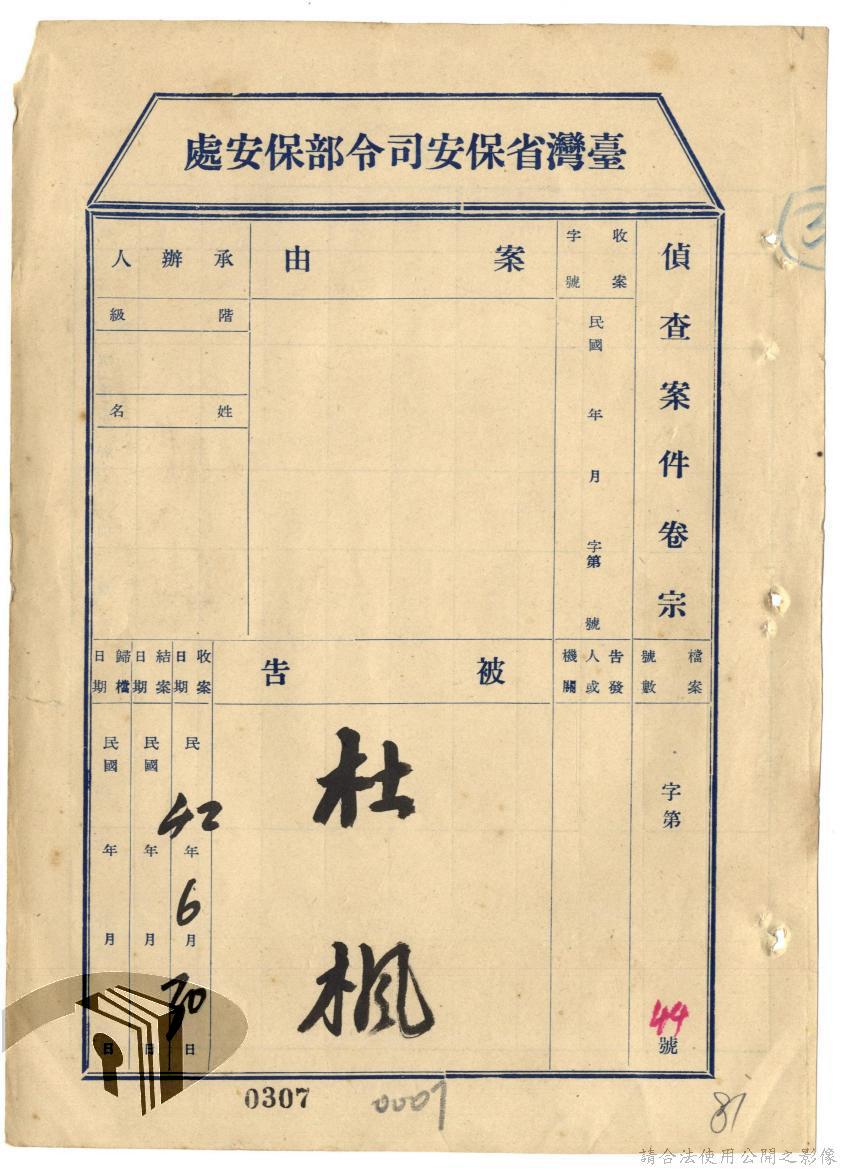 臺灣省保安司令部保安處
偵查案件卷宗
收案字號
民國 年 月 字第 號
案由
承辦人
階級
姓名
檔案號數
字第44號
告發人或機關
被告
杜楓
收案日期
民 42年6月30日
結案日期
民國 年 月 日
歸檔日期
民國 年 月 日
0307
81
請合法使用公開之影像